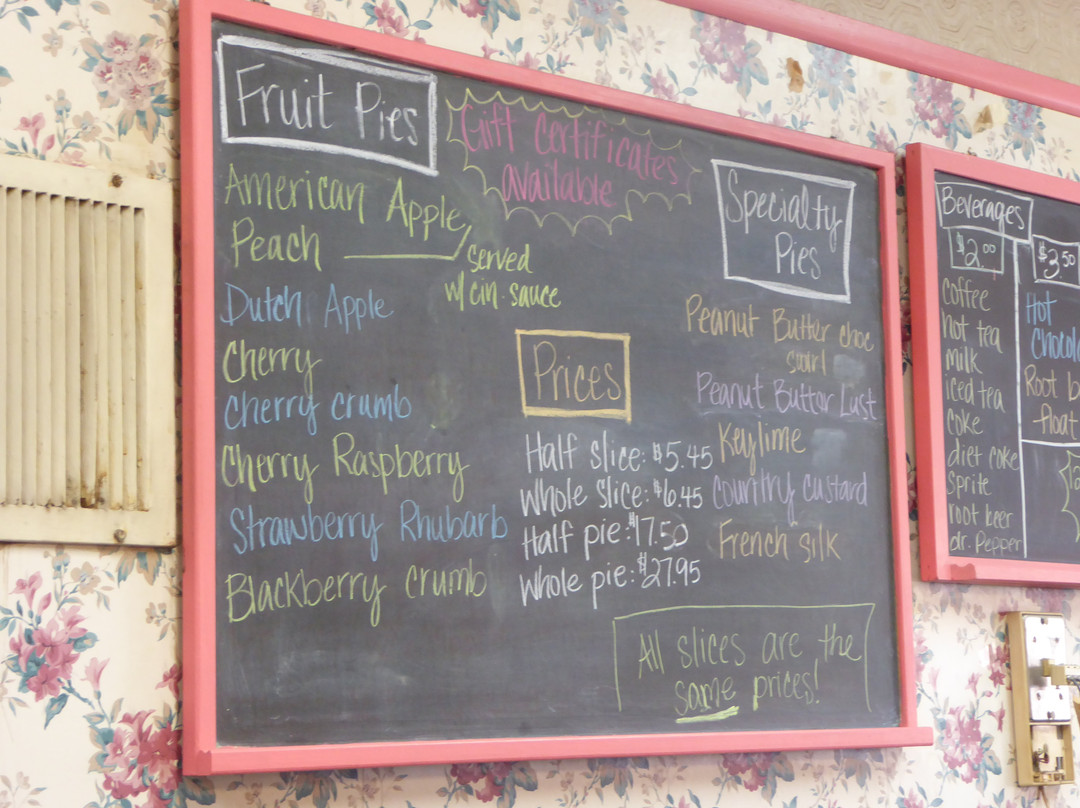 Fruit Pies
American Apple
Peach
served
w/ cin. sauce
Dutch Apple
Cherry
Cherry crumb
Cherry Raspberry
Strawberry Rhubarb
Blackberry crumb
Gift Certificates
available
Prices
Half slice: $5.45
Whole slice: $6.45
Half pie: $17.50
Whole pie: $27.95
Specialty
Pies
Peanut Butter choc
swirl
Peanut Butter Lust
Keylime
Country custard
French silk
All slices are the
same prices!
Beverages
$2.00
coffee
hot tea
milk
iced tea
coke
diet coke
sprite
root beer
dr. Pepper
$3.50
Hot
Root
float